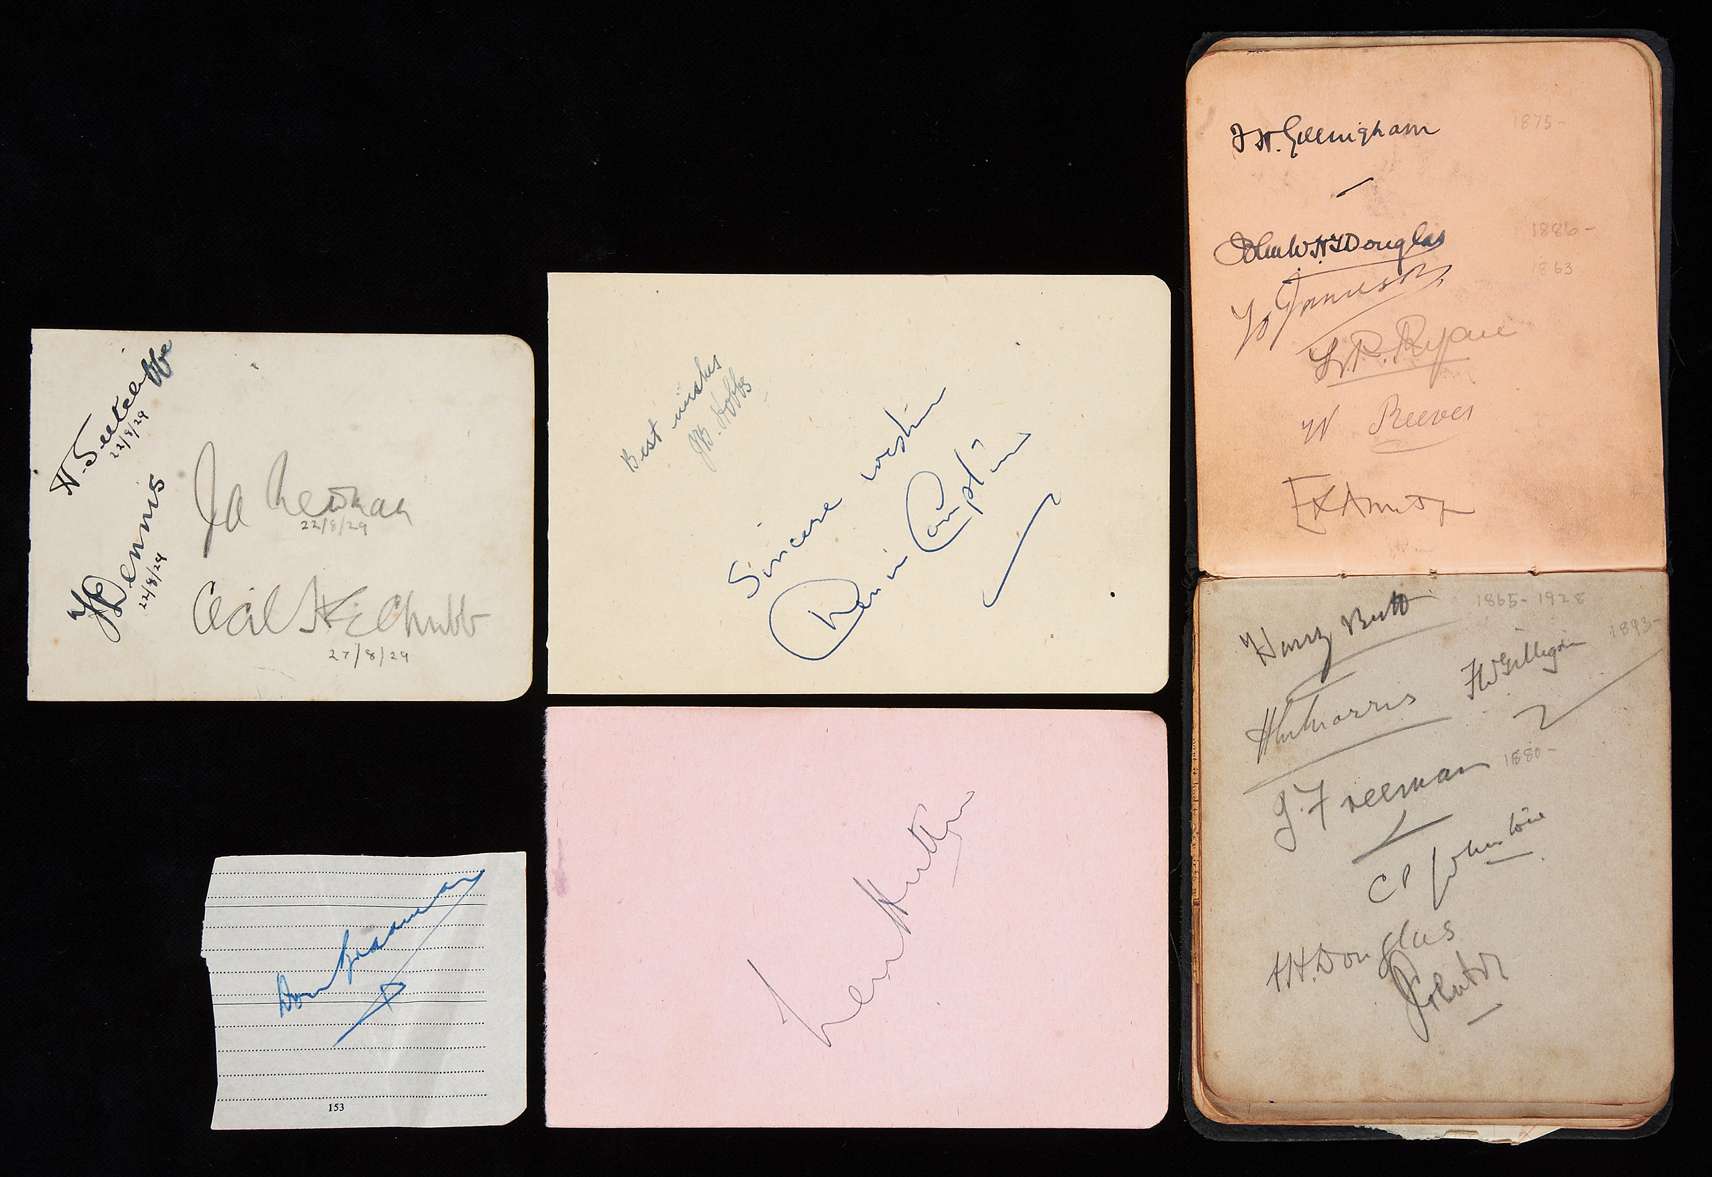 H. Sutcliffe
22/8/29
F Dennis
22/8/29
J A Newman
22/8/29
Cecil H E Chubb
27/8/29
Best wishes
JB. Hobbs
Sincere wishes
Denis Compton
Don Bradman
153
Len Hutton
F H. Gillingham
1875-
John W.H.T Douglas
1886-
1863
W Reeves
Harry Butt
1865-1928
F W Gilligan
1893-
H M Morris
J. Freeman
1880-
C P Johnstone
A H. Douglas